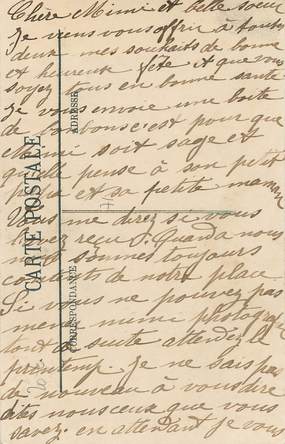 Chère Mimi et belle soeur
Je viens vous offrir à toutes
deux mes souhaits de bonne
et heureuse fête et que vous
soyez tous en bonne santé
Je vous envoie une boîte
de bonbons c'est pour que
Mimi soit sage et
qu'elle pense à son petit
et sa petite maman
Vous me direz si vous
l'avez reçu. Quand à nous
nous sommes toujours
contents de notre place
Si vous ne pouvez pas
mimi
tout de suite attendez le
printemp. Je ne sais pas
de nouveau à vous dire
dites nous ceux que vous
savez. en attendant je vous
CARTE POSTALE
ADRESSE
CORRESPONDANCE